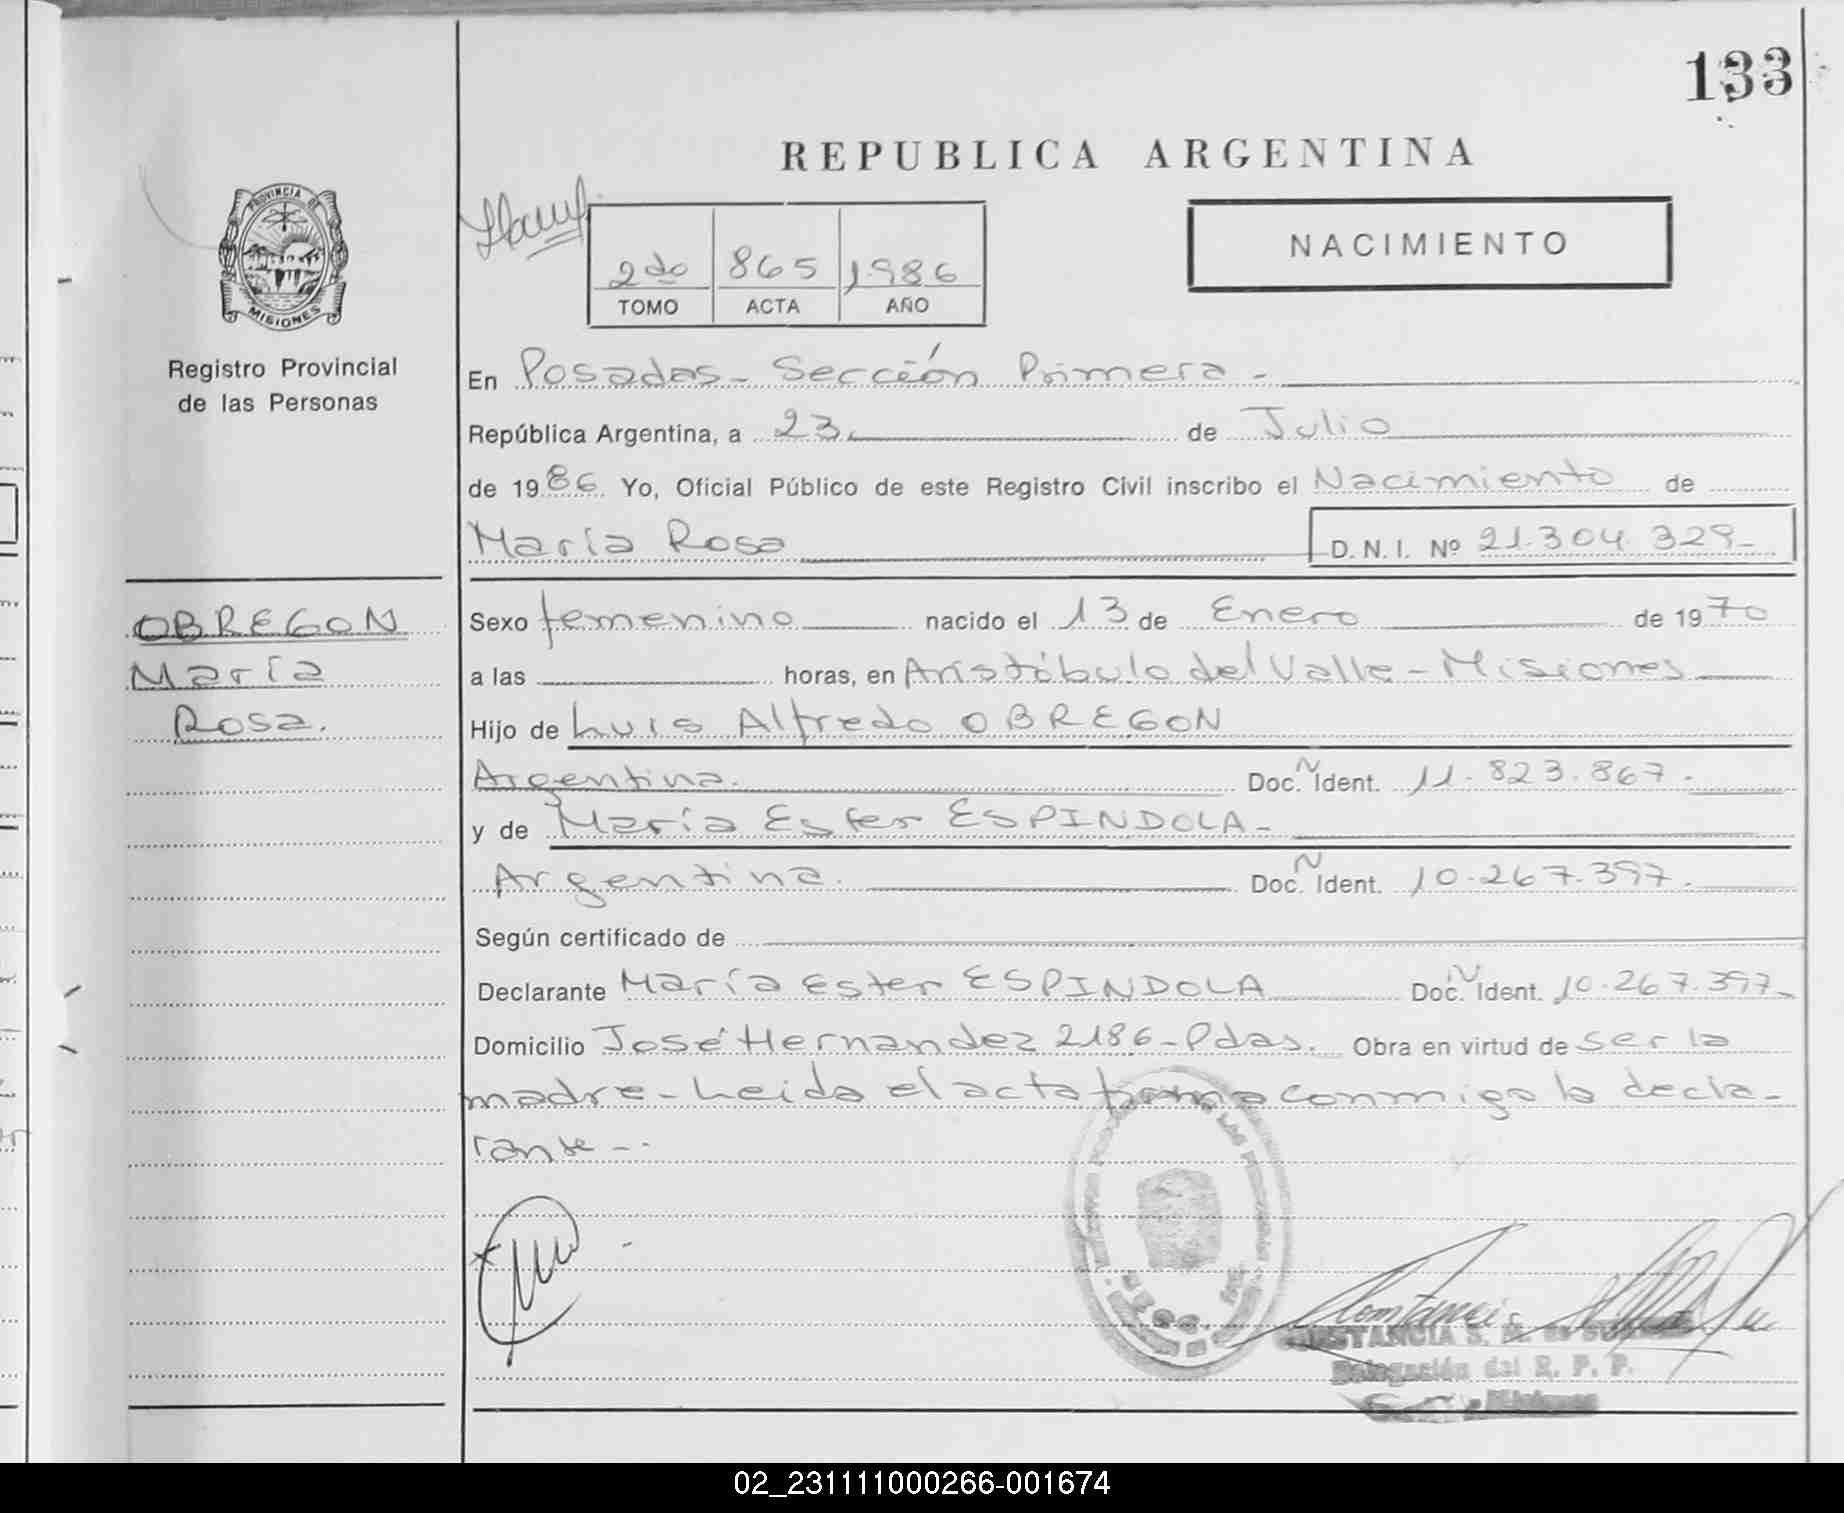 133
REPUBLICA ARGENTINA
NACIMIENTO
2do 865 1986
TOMO ACTA AÑO
PROVINCIA DE
MISIONES
Registro Provincial
de las Personas
En Posadas - Sección Primera -
República Argentina, a 23 de Julio
de 1986 Yo, Oficial Público de este Registro Civil inscribo el Nacimiento de
María Rosa D. N. I. Nº 21.304.329-
OBREGON
María
Rosa.
Sexo femenino nacido el 13 de Enero de 1970
a las horas, en Aristóbulo del Valle - Misiones
Hijo de Luis Alfredo OBREGON
Argentina. Doc. N Ident. 11.823.867.
y de María Ester ESPINDOLA -
Argentina. Doc. N Ident. 10.267.397.
Según certificado de
Declarante María Ester ESPINDOLA Doc. N Ident. 10.267.397-
Domicilio José Hernandez 2186 - Pdas. Obra en virtud de ser la
madre - Leida el acta firma conmigo la decla-
rante - .
Delegación del R. P. P.
Misiones
02_231111000266-001674